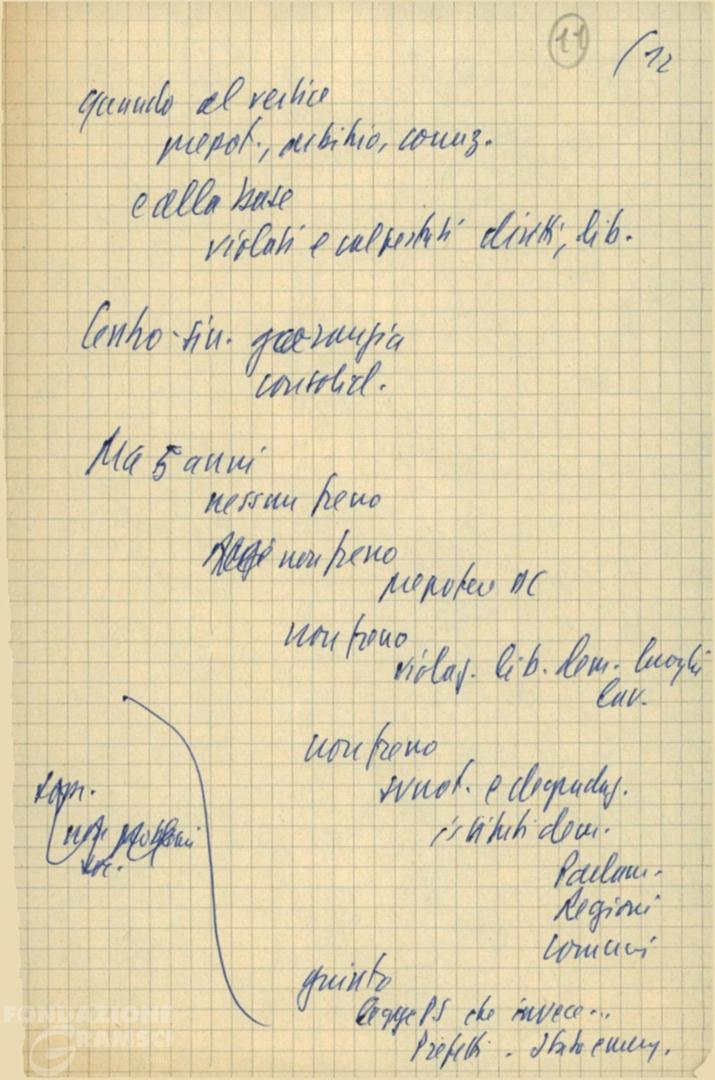 11
(12
quando al vertice
prepot., arbitrio, corruz.
e alla base
violati e calpestati diritti, lib.
Centro-sin. garanzia
consolid.
Ma 5 anni
nessun freno
non freno
prepotere DC
non freno
violaz. lib. dem. luoghi
lav.
non freno
svuot. e degradaz.
istituti dem.
Parlam.
Regioni
Comuni
sopr.
nei problemi
soc.
quinto
legge PS che invece...
Prefetti - Stato emerg.
FONDAZIONE
GRAMSCI